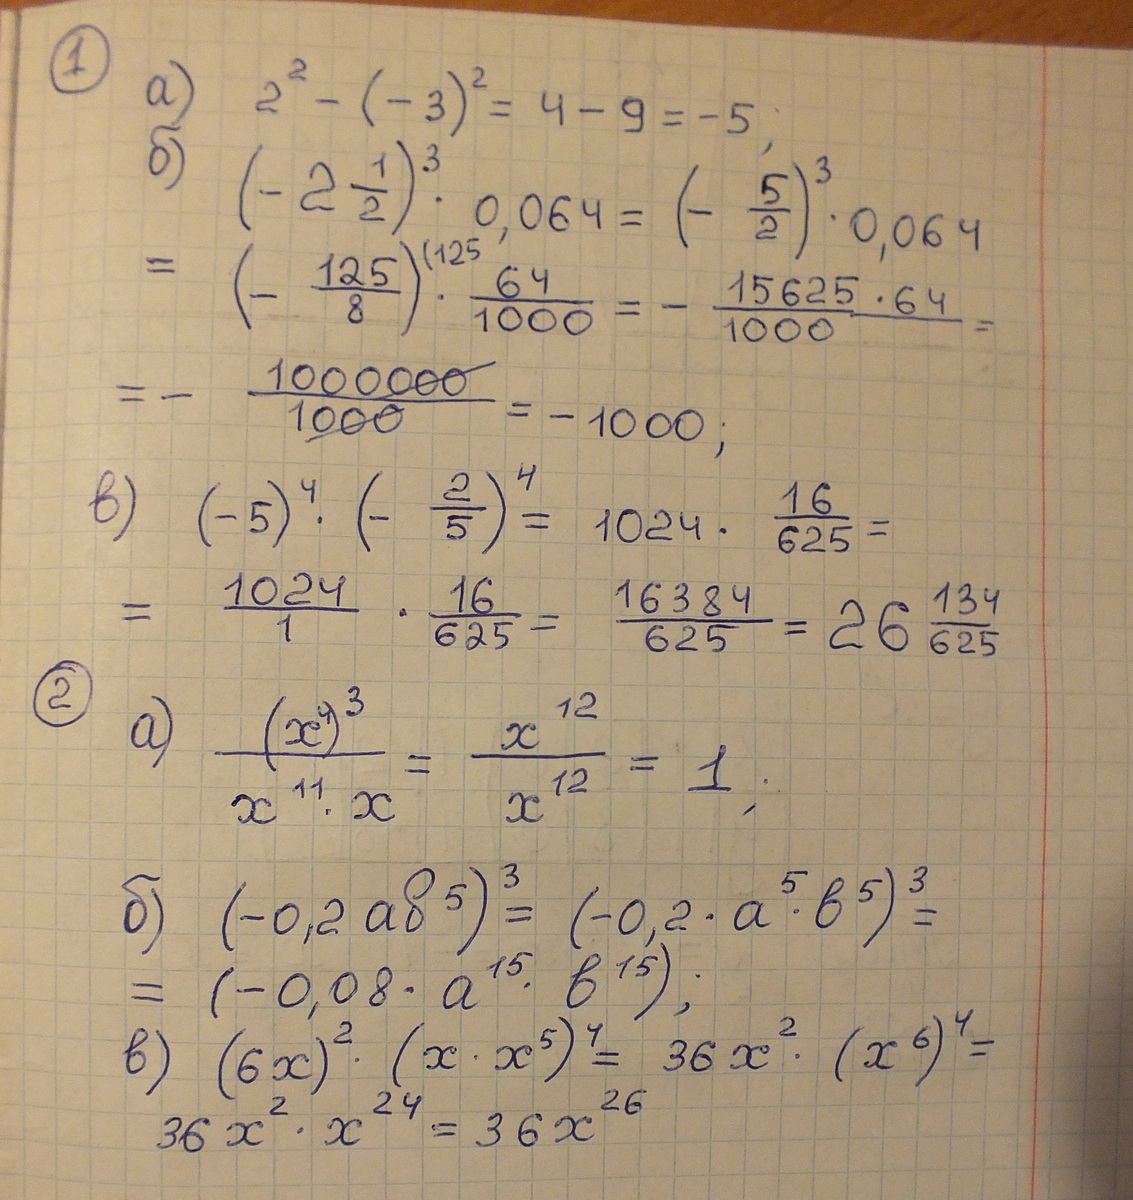 1
а) 2² - (-3)² = 4 - 9 = -5;
б) (-2 1/2)³ · 0,064 = (- 5/2)³ · 0,064
= (- 125/8)^(125 · 64/1000 = - 15625 · 64/1000 =
= - 1000000/1000 = -1000;
в) (-5)⁴ · (- 2/5)⁴ = 1024 · 16/625 =
= 1024/1 · 16/625 = 16384/625 = 26 134/625
2
а) (x⁴)³/x¹¹ · x = x¹²/x¹² = 1;
б) (-0,2 aб⁵)³ = (-0,2 · a⁵ · в⁵)³ =
= (-0,08 · a¹⁵ · в¹⁵);
в) (6x)² · (x · x⁵)⁴ = 36x² · (x⁶)⁴ =
36x² · x²⁴ = 36x²⁶